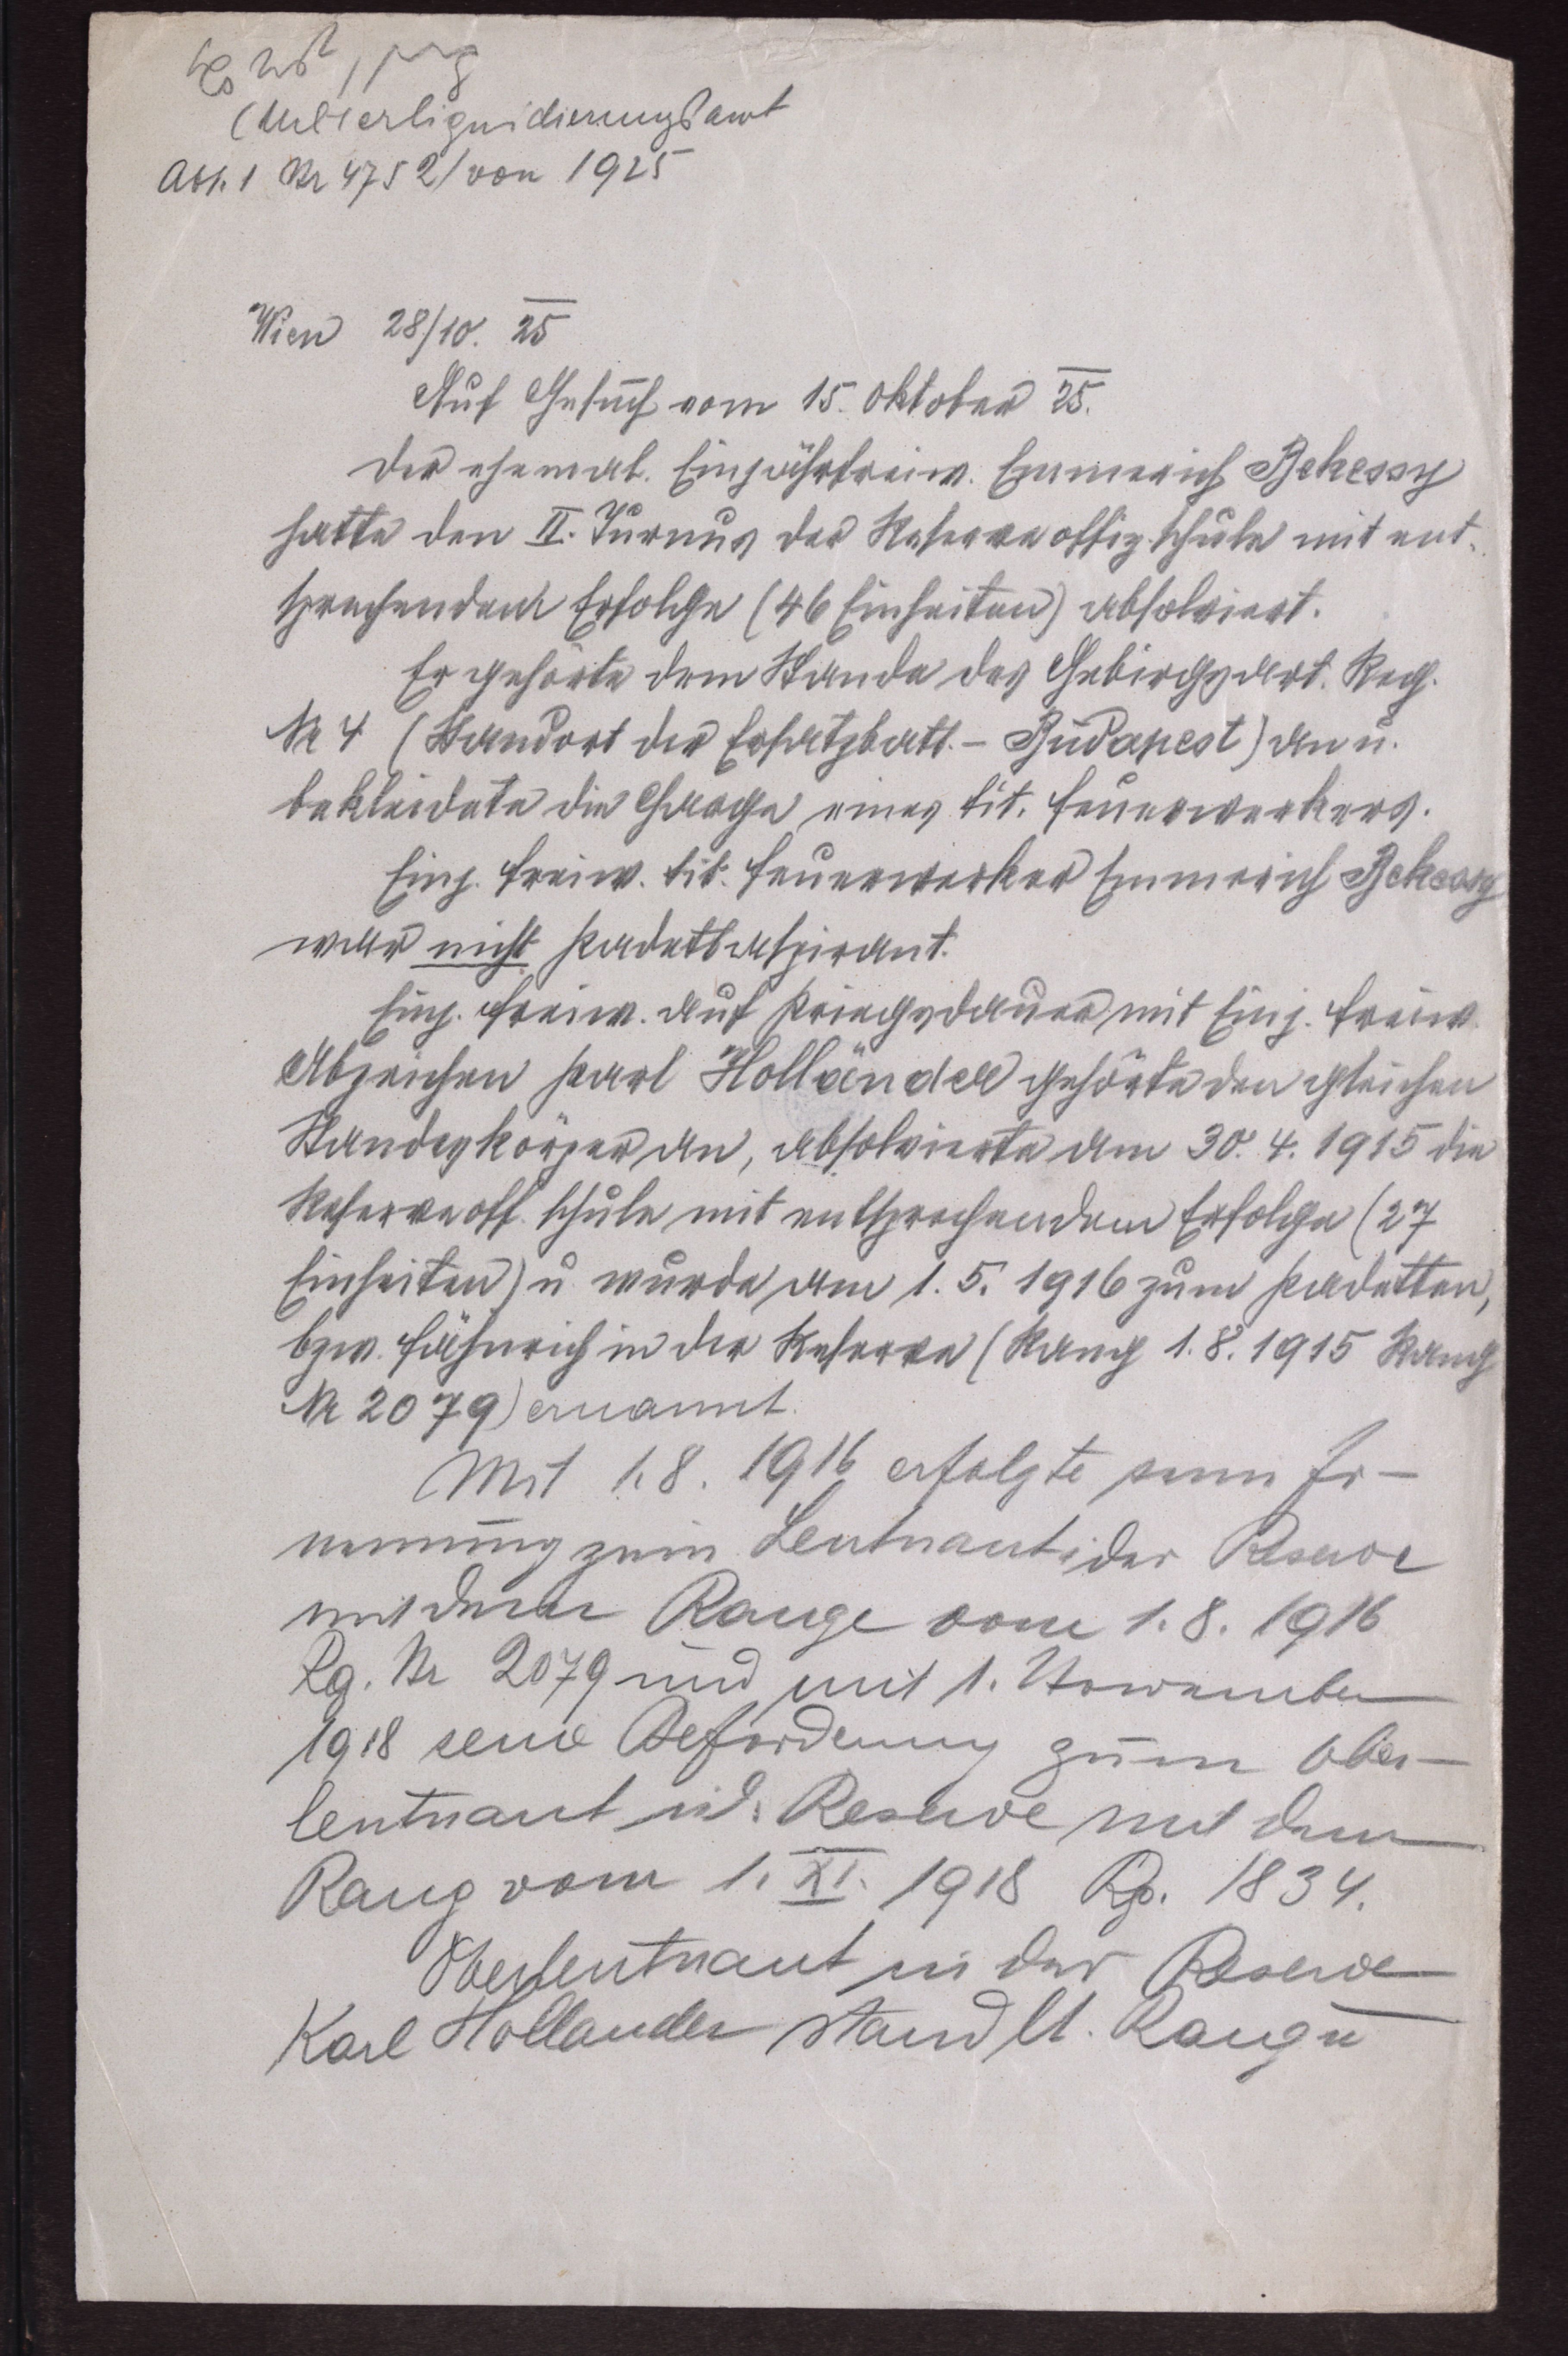 (Militärliquidierungsamt
Abt. 1 Nr 4752/ von 1925
Wien 28/10. 25
Auf Gesuch vom 15. Oktober 25.
Der ehemal. Einjährfreiw. Emmerich Bekessy
hatte den II. Turnus der Reserveoffiz.schule mit ent-
sprechendem Erfolge (46 Einheiten) absolviert.
Er gehörte dem Stande des Gebirgsart. Reg.
Nr 4 (Standort der Ersatzbatt. - Budapest) an u.
bekleidete die Charge eines tit. Feuerwerkers.
Einj. freiw. tit. Feuerwerker Emmerich Bekessy
war nicht Kadettaspirant.
Einj. freiw. auf Kriegsdauer mit Einj. freiw.
Abzeichen Karl Holländer gehörte den gleichen
Standeskörper an, absolvierte am 30. 4. 1915 die
Reserveoff. schule mit entsprechendem Erfolge (27
Einheiten) u. wurde am 1. 5. 1916 zum Kadetten,
bzw. Fähnrich in der Reserve (Rang 1. 8. 1915 Rang
Nr 2079) ernannt.
Mit 1. 8. 1916 erfolgte seine Er-
nennung zum Leutnant i der Reserve
mit dem Range vom 1. 8. 1916
Rg. Nr 2079 und mit 1. November
1918 seine Beförderung zum Ober-
leutnant i. d. Reserve mit dem
Rang vom 1. XI. 1918 Rg. 1834.
Oberleutnant in der Reserve
Karl Hollander stand lt. Rang u